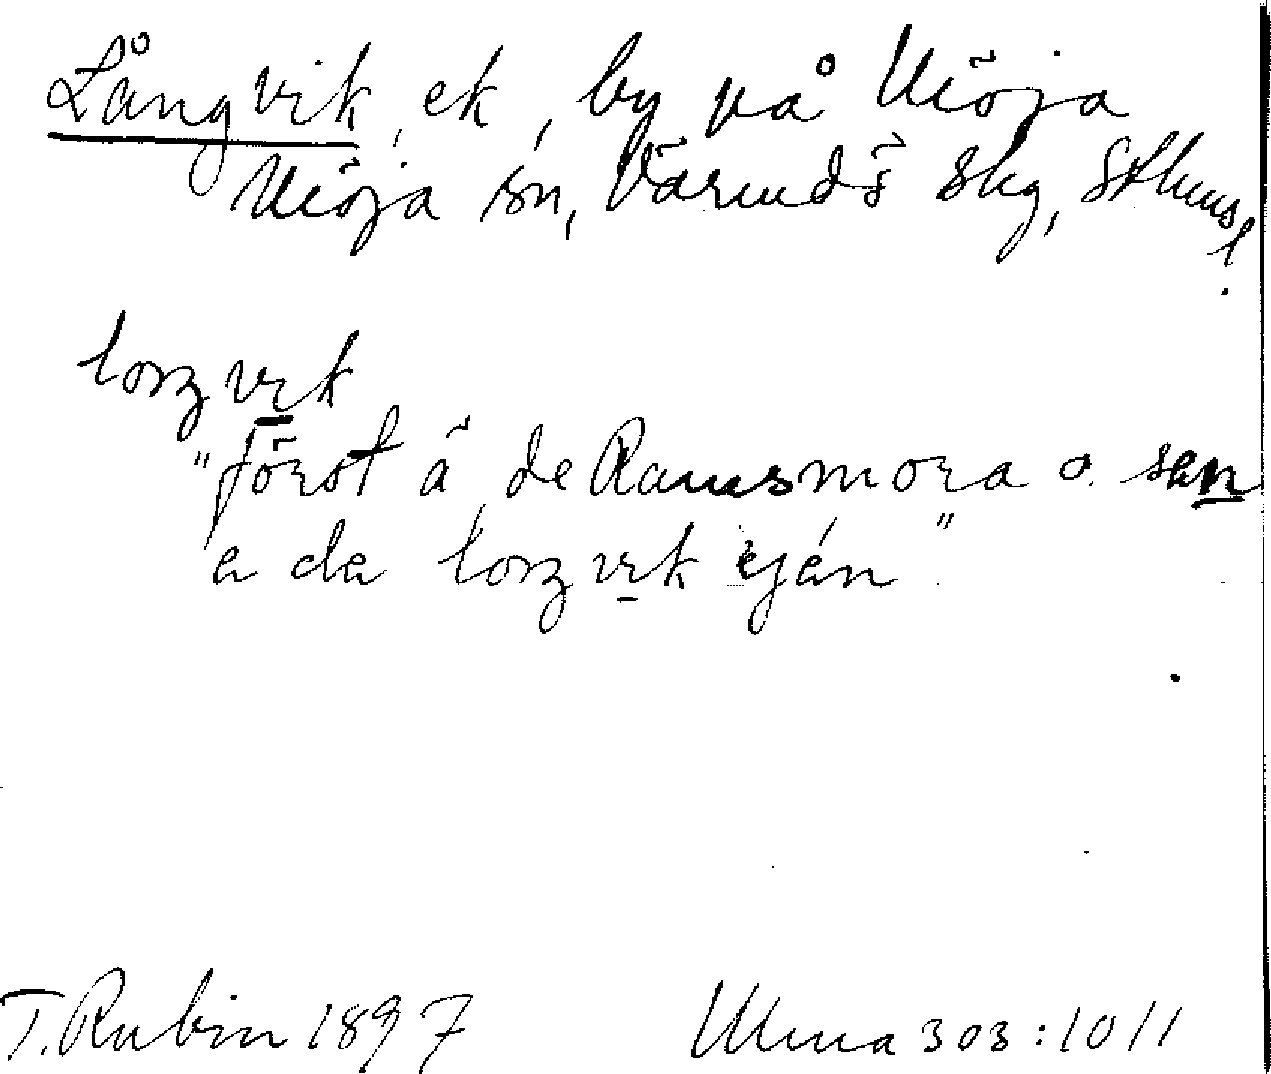 Långvik, ek, by på Möja
Möja sn, Värmdö skg, Sthms l.
lorzvik
"först ä de Ramsmora o. san
a da lorzvik ején".
T. Rubin 1897 Ulma 303:10 11